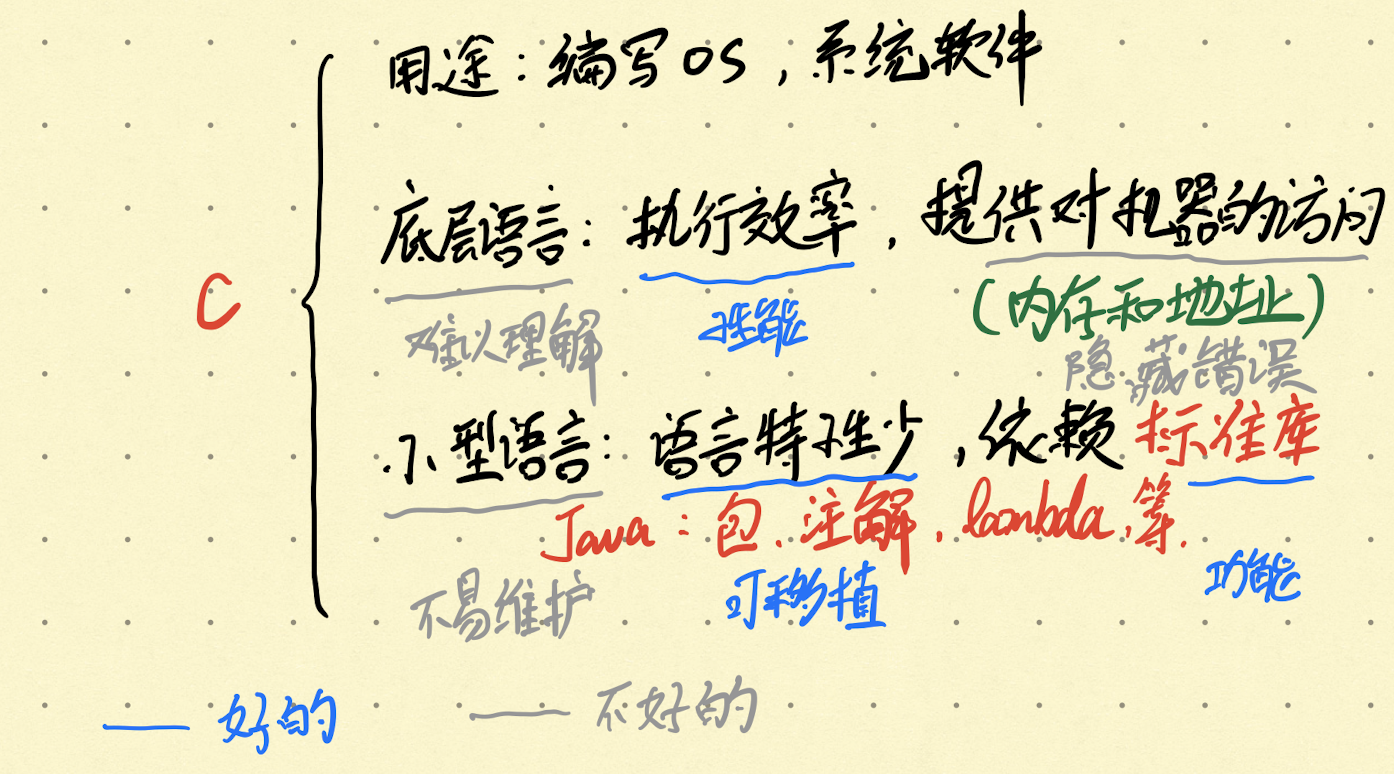 用途：编写OS，系统软件
底层语言：执行效率，提供对机器的访问
C
难以理解 性能 (内存和地址)
隐藏错误
小型语言：语言特性少，依赖标准库
Java：包、注解，lambda，等.
不易维护 可移植 功能
—— 好的 —— 不好的